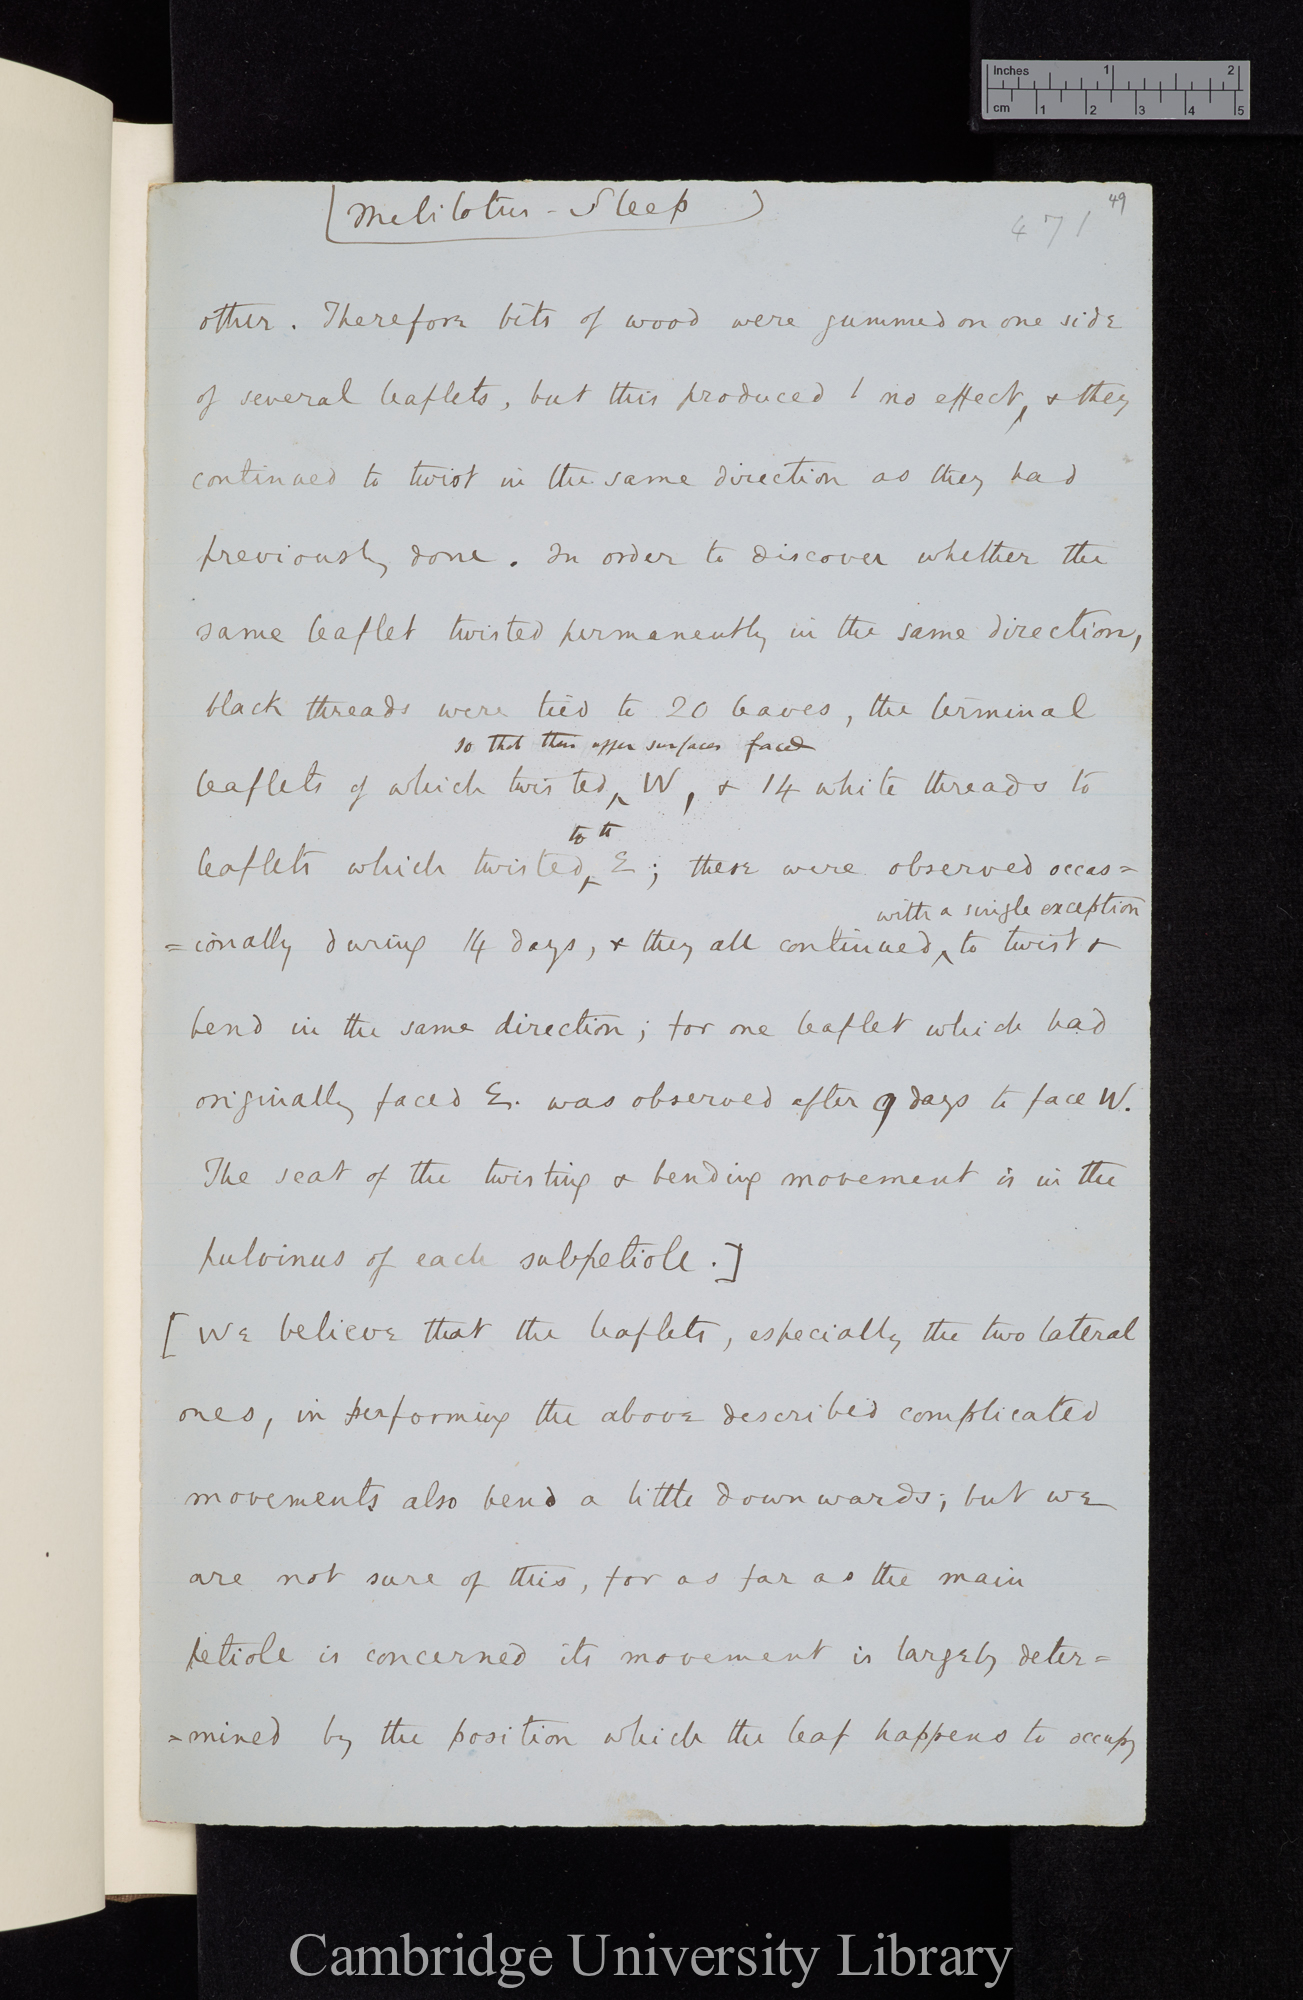 Inches 1 2
cm 1 2 3 4 5
49
(Melilotus - Sleep)
471
other. Therefore bits of wood were gummed on one side
of several leaflets, but this produced no effect, & they
continued to twist in the same direction as they had
previously done. In order to discover whether the
same leaflet twisted permanently in the same direction,
black threads were tied to 20 leaves, the terminal
so that their upper surfaces faced
leaflets of which twisted ‸ W, & 14 white threads to
to th
leaflets which twisted, ‸ E; these were observed occas=
with a single exception
=ionally during 14 days, & they all continued, ‸ to twist &
bend in the same direction; for one leaflet which had
originally faced E. was observed after 9 days to face W.
The seat of the twisting & bending movement is in the
pulvinus of each subpetiole.]
[We believe that the leaflets, especially the two lateral
ones, in performing the above described complicated
movements also bend a little downwards; but we
are not sure of this, for as far as the main
petiole is concerned its movement is largely deter=
=mined by the position which the leaf happens to occupy
Cambridge University Library